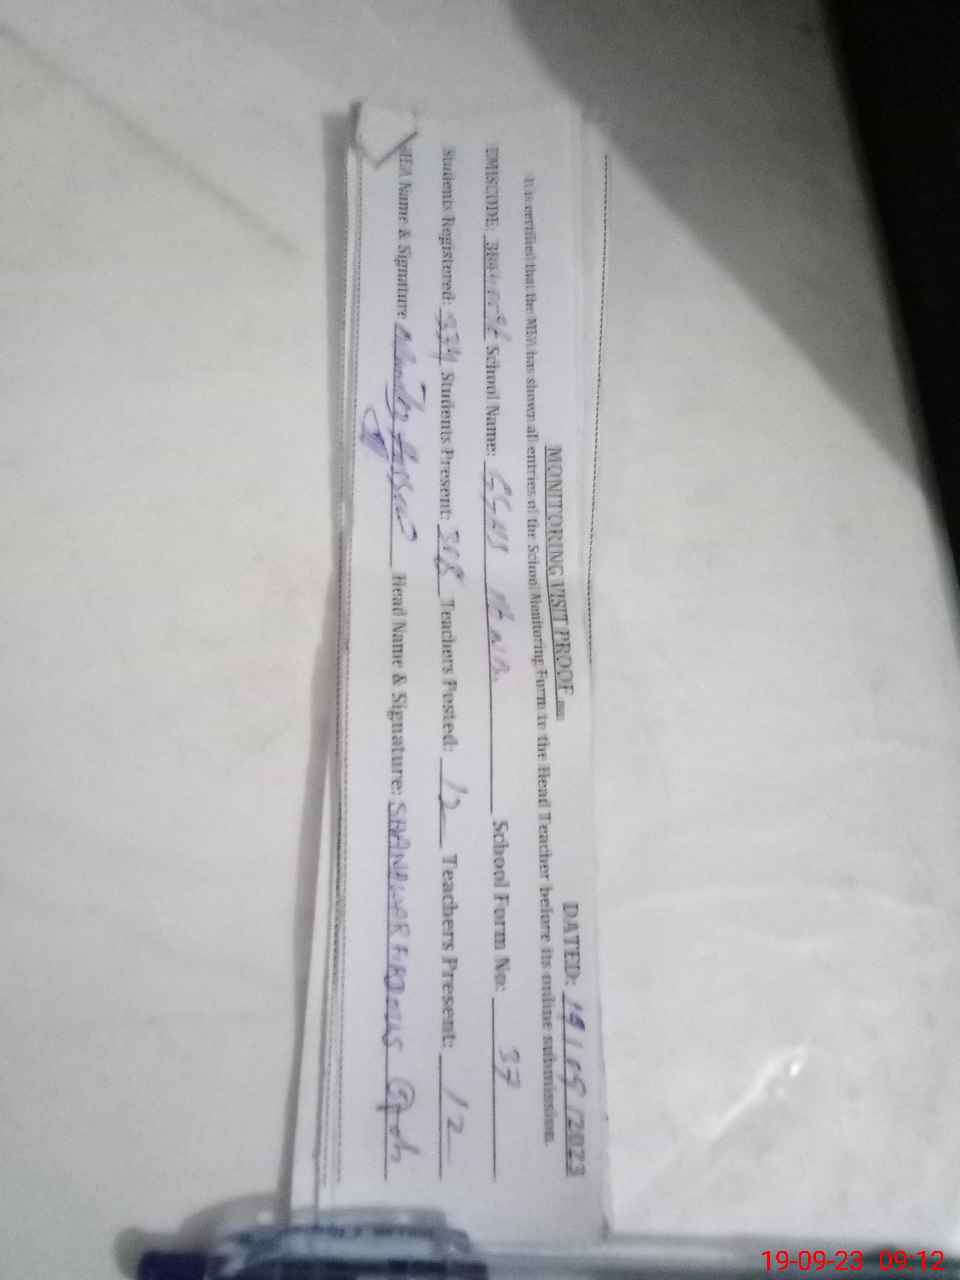 MONITORING VISIT PROOF DATED: 19/09/2023
It is certified that the MEA has shown all entries of the School Monitoring Form to the Head Teacher before its online submission.
EMISCODE: School Name: GGHS School Form No: 37
Students Registered: 334 Students Present: 308 Teachers Posted: 12 Teachers Present: 12
MEA Name & Signature Head Name & Signature: SHANAWAR FIRDOUS
19-09-23 09:12